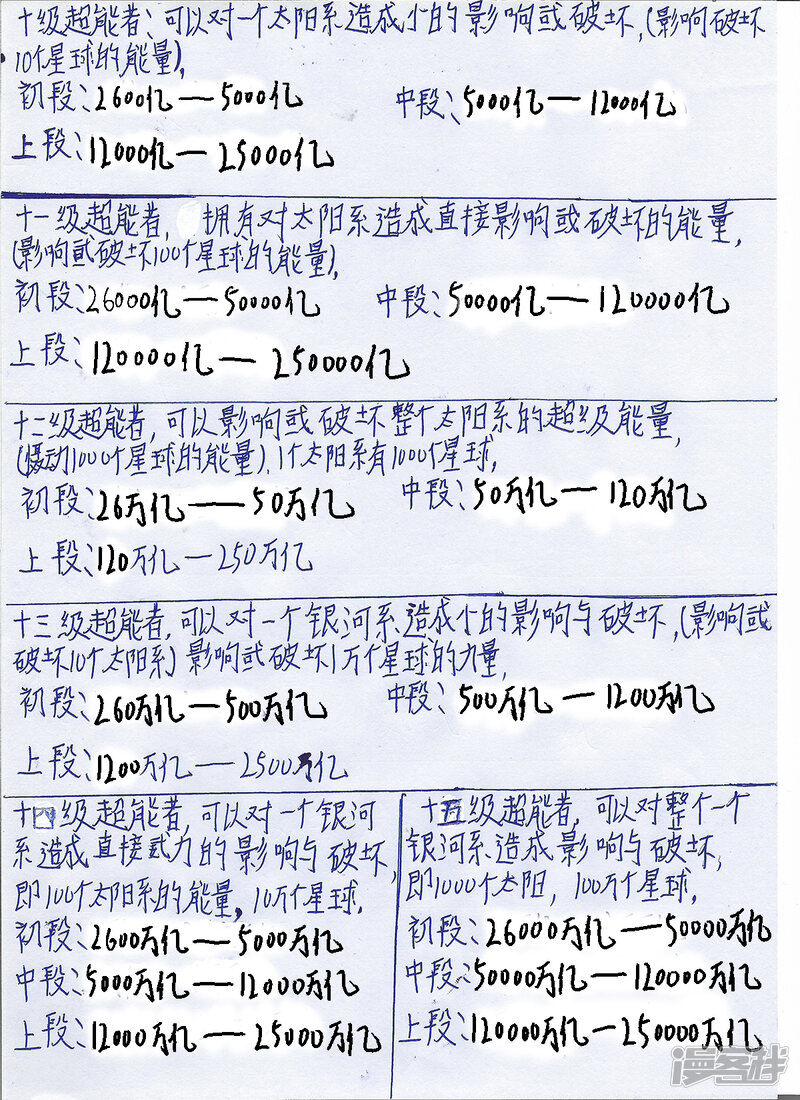 十级超能者、可以对一个太阳系造成小的影响或破坏,(影响破坏
10个星球的能量),
初段:2600亿—5000亿 中段:5000亿—12000亿
上段:12000亿—25000亿
十一级超能者, 拥有对太阳系造成直接影响或破坏的能量,
(影响或破坏100个星球的能量),
初段:26000亿—50000亿 中段:50000亿—120000亿
上段:120000亿—250000亿
十二级超能者,可以影响或破坏整个太阳系的超级能量,
(撮动1000个星球的能量),1个太阳系有1000个星球,
初段:26万亿—50万亿 中段:50万亿—120万亿
上段:120万亿—250万亿
十三级超能者,可以对一个银河系造成小的影响与破坏,(影响或
破坏10个太阳系)影响或破坏1万个星球的力量,
初段:260万亿—500万亿 中段:500万亿—1200万亿
上段:1200万亿—2500万亿
十四级超能者,可以对一个银河
系造成直接武力的影响与破坏,
即100个太阳系的能量,10万个星球,
初段:2600万亿—5000万亿
中段:5000万亿—12000万亿
上段:12000万亿—25000万亿
十五级超能者,可以对整个一个
银河系造成影响与破坏,
即1000个太阳,100万个星球,
初段:26000万亿—50000万亿
中段:50000万亿—120000万亿
上段:120000万亿—250000万亿
漫客栈